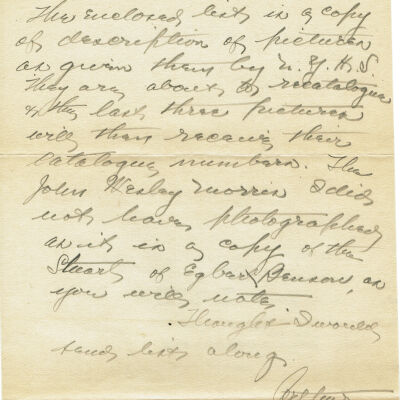 The enclosed list is a copy
of description of pictures
as given them by N.Y.H.S.
They are about to recatalogue
& the last three pictures
will then receive their
catalogue numbers. The
John Wesley Morris I did
not have photographed
as it is a copy of the
Stuart of Egbert Benson, as
you will note.
Thought I would
send list along.